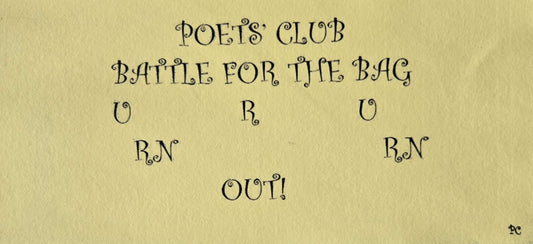 POETS' CLUB
BATTLE FOR THE BAG
U R U
RN RN
OUT!
PC